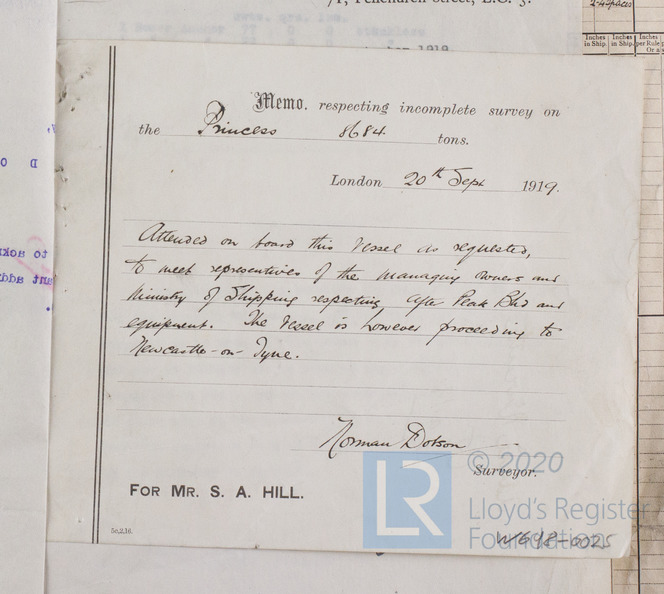 71, Fenchurch Street, E.C. 3.
1919
2-4 spaces
Inches in Ship. Inches in Ship. Inches per Rule
Memo. respecting incomplete survey on
the Princess 8684 tons.
London 20th Sept 1919.
Attended on board this vessel as requested,
to meet representives of the managing owners and
Ministry of Shipping respecting After Peak Bhd and
equipment. The vessel is however proceeding to
Newcastle-on-Tyne.
Norman Dobson
Surveyor.
FOR MR. S. A. HILL.
LR
© 2020
Lloyd's Register
Foundation
W698-0025